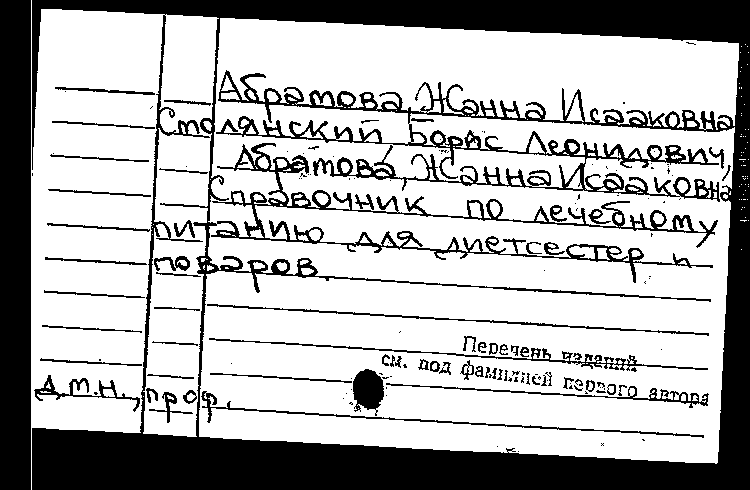 Абрамова, Жанна Исааковна
Столянский, Борис Леонидович,
Абрамова, Жанна Исааковна
Справочник по лечебному
питанию для диетсестер и
поваров.
Перечень изданий
см. под фамилией первого автора
д.м.н., проф.